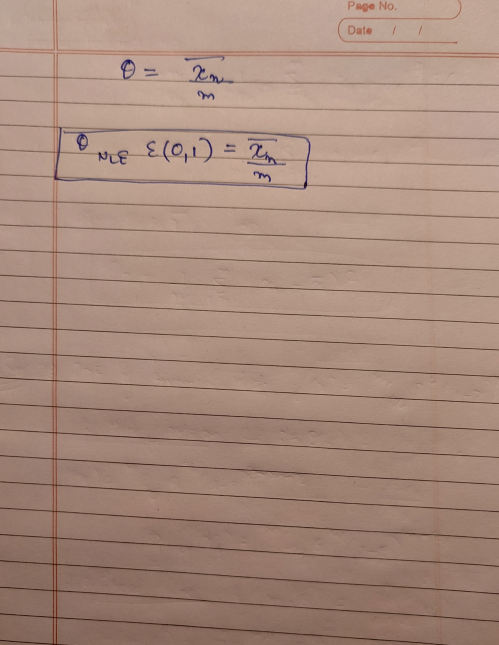 Page No.
Date / /
θ = x̄ₙ / m
θ_MLE ε(0,1) = x̄ₙ / m